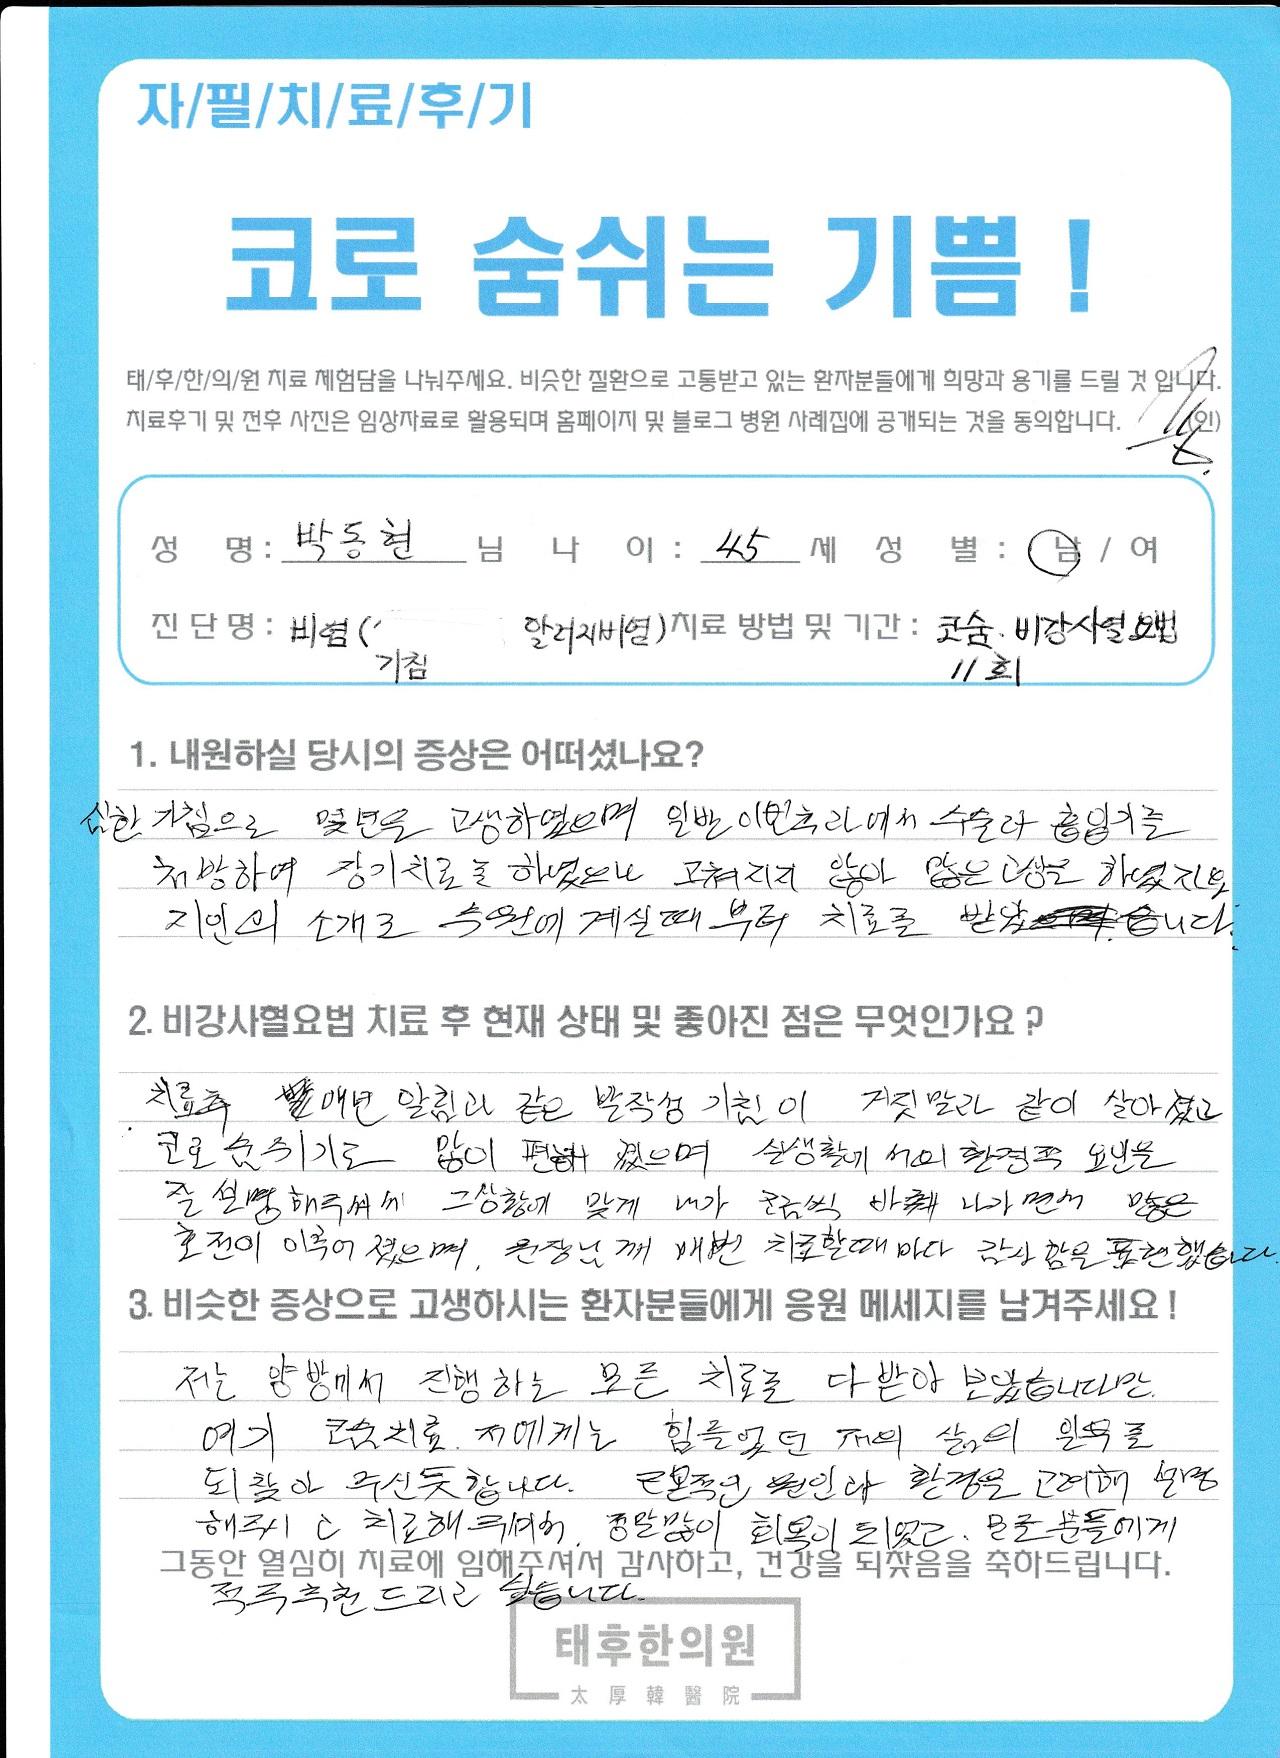 자/필/치/료/후/기
코로 숨쉬는 기쁨 !
태/후/한/의/원 치료 체험담을 나눠주세요. 비슷한 질환으로 고통받고 있는 환자분들에게 희망과 용기를 드릴 것 입니다.
치료후기 및 전후 사진은 임상자료로 활용되며 홈페이지 및 블로그 병원 사례집에 공개되는 것을 동의합니다. (인)
성 명 : 박동현 님 나 이 : 45 세 성 별 : 남 / 여
진 단 명 : 비염( 알러지비염) 치료 방법 및 기간 : 코숨. 비강사혈요법
기침 11회
1. 내원하실 당시의 증상은 어떠셨나요?
심한 기침으로 몇년을 고생하였으며 일반 이빈후과에서 수술과 흡입기를
처방하여 장기치료를 하였으나 고쳐지지 않아 많은 고생을 하였지요
지인의 소개로 수원에 계실때 부터 치료를 받았습니다.
2. 비강사혈요법 치료 후 현재 상태 및 좋아진 점은 무엇인가요 ?
치료후 매년 알림과 같은 발작성 기침이 거짓말과 같이 살아졌고
코로 숨쉬기도 많이 편해 졌으며 실생활에서의 환경쪽 요인을
잘 설명해주셔서 그상황에 맞게 내가 조금씩 바꿔 나가면서 많은
호전이 이루어 졌으며, 원장님께 매번 치료할때마다 감사함을 표현했습니다.
3. 비슷한 증상으로 고생하시는 환자분들에게 응원 메세지를 남겨주세요 !
저는 양방에서 진행하는 모든 치료를 다 받아 보았습니다만.
여기 코숨치료. 저에게는 힘들었던 저의 삶의 의욕을
되찾아 주신듯합니다. 근본적인 원인과 환경을 고려해 설명
해주시고 치료해 주셔서, 정말많이 회복이 되었고. 모든 분들에게
그동안 열심히 치료에 임해주셔서 감사하고, 건강을 되찾음을 축하드립니다.
적극추천 드리고 싶습니다.
태후한의원
太 厚 韓 醫 院